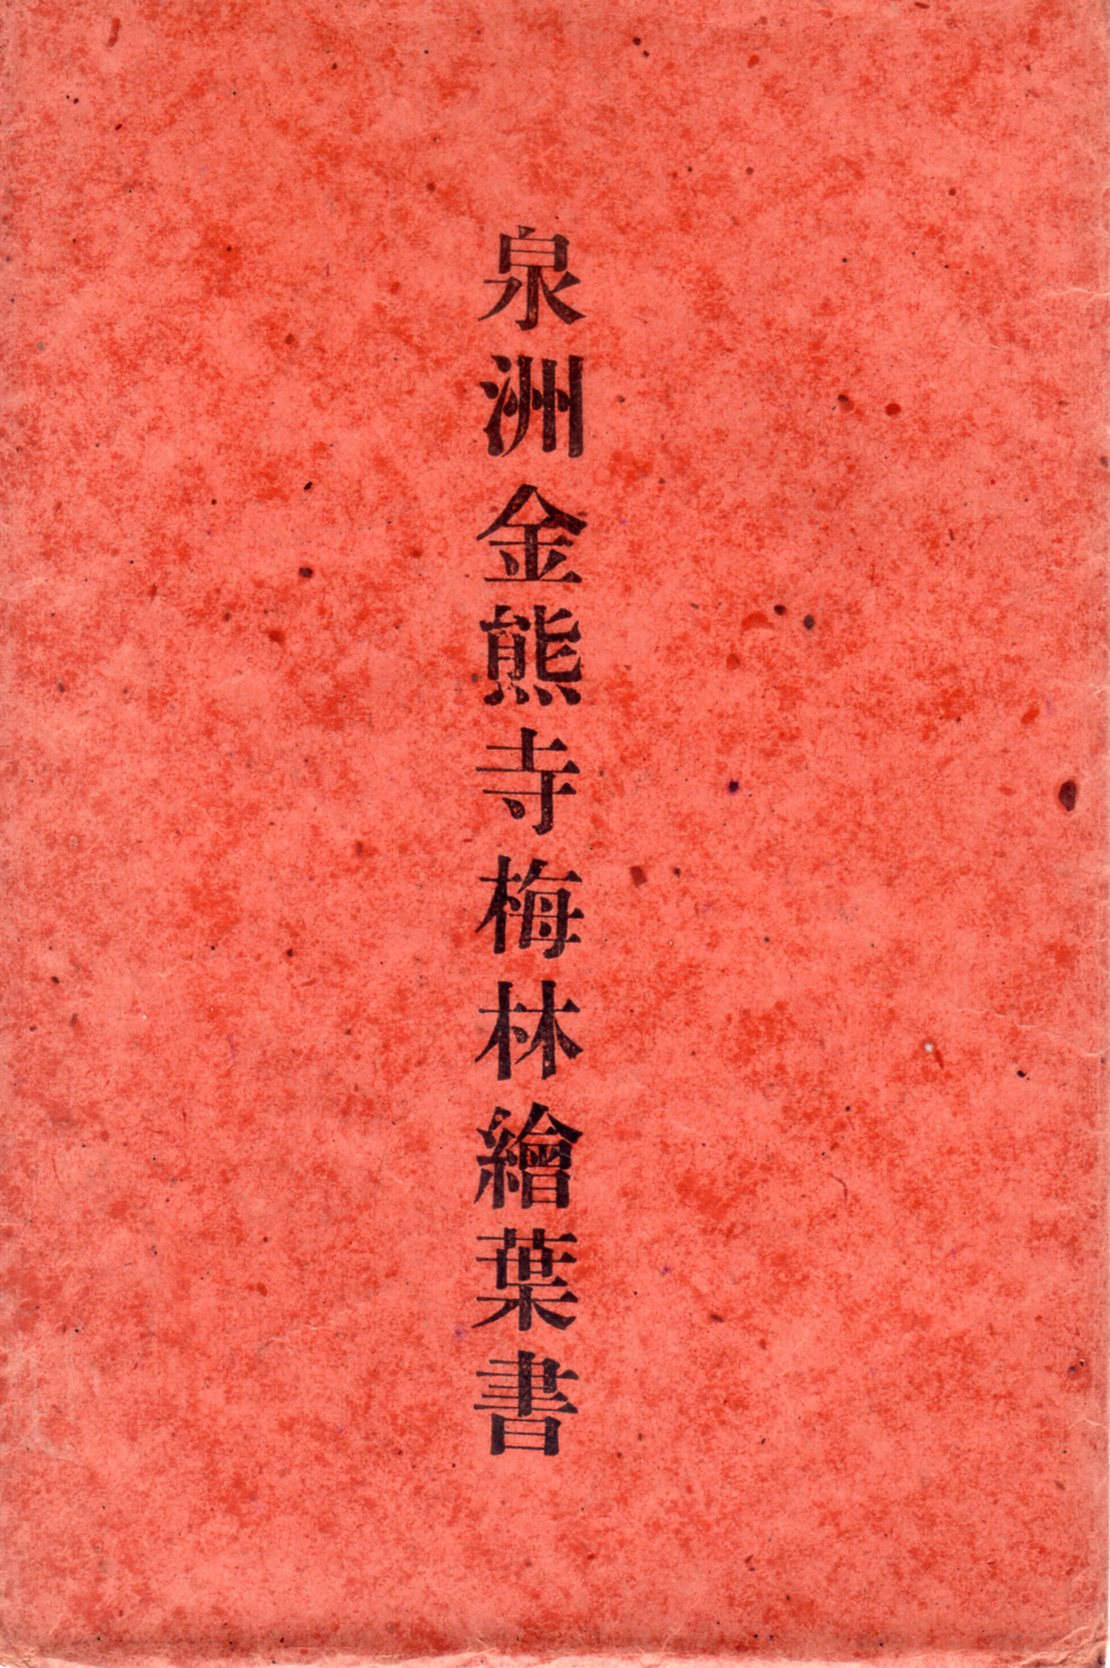 泉洲金熊寺梅林繪葉書